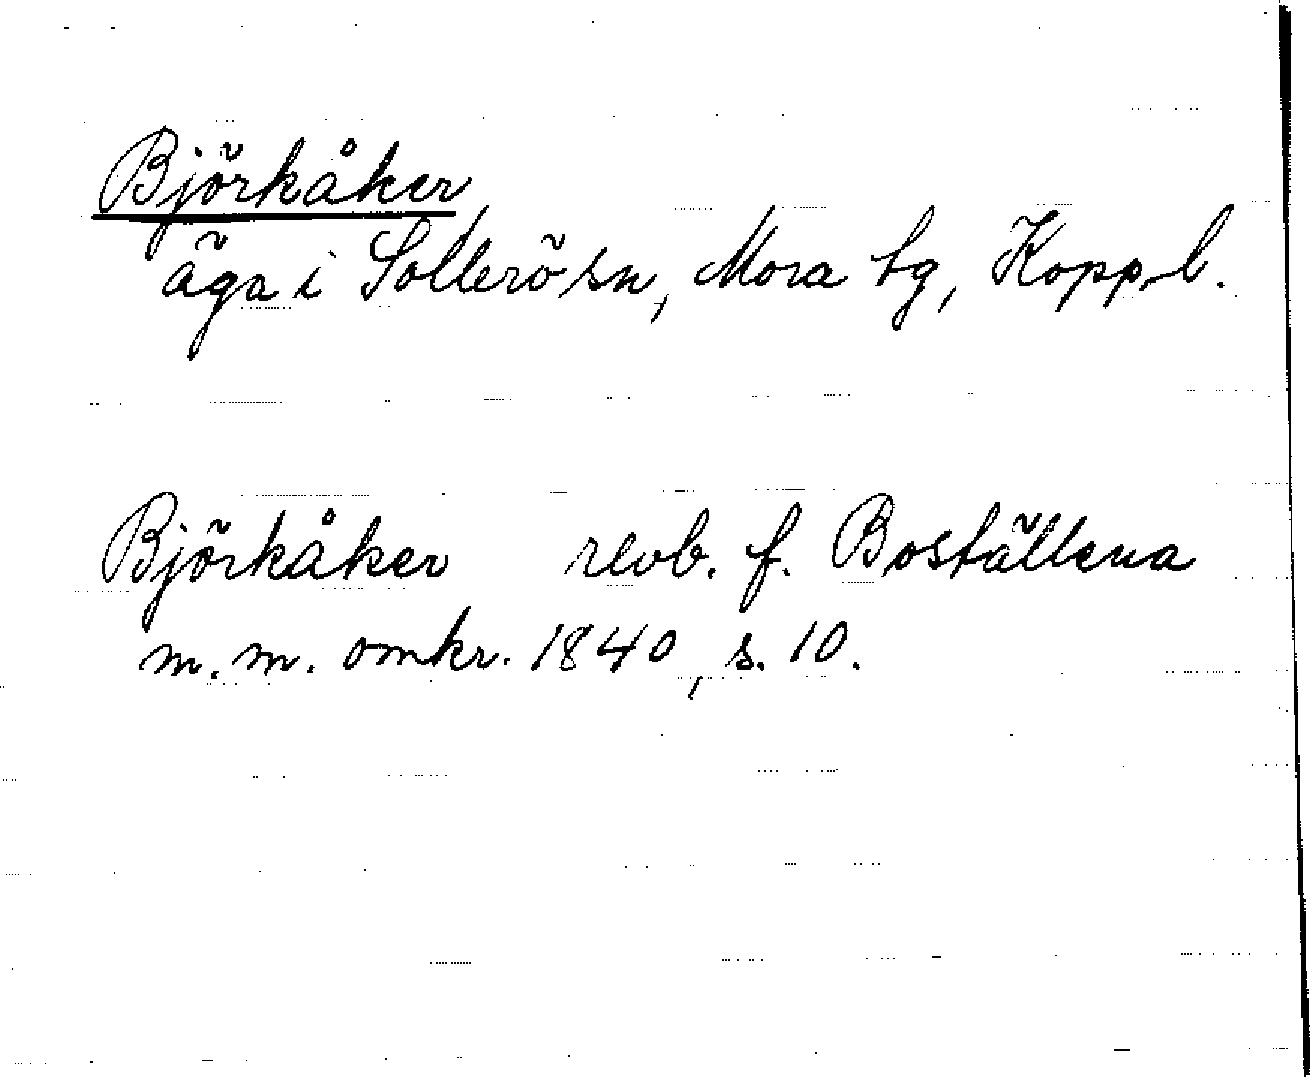 Björkåker
äga i Sollerö sn, Mora tg, Kopp. l.
Björkåker revb. f. Boställena
m. m. omkr. 1840, s. 10.